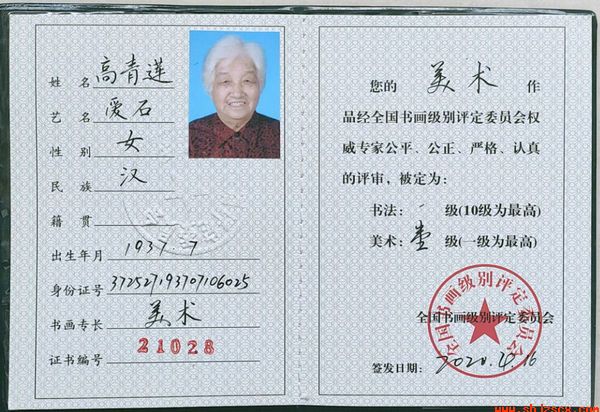 姓名 高青莲
艺名 爱石
性别 女
民族 汉
籍贯
出生年月 1937 7
身份证号 372527193707106025
书画专长 美术
证书编号 21028
您的 美术 作
品经全国书画级别评定委员会权
威专家公平、公正、严格、认真
的评审，被定为：
书法： 级(10级为最高)
美术：壹 级(一级为最高)
全国书画级别评定委员会
全国书画级别评定委员会
签发日期： 2020.4.16